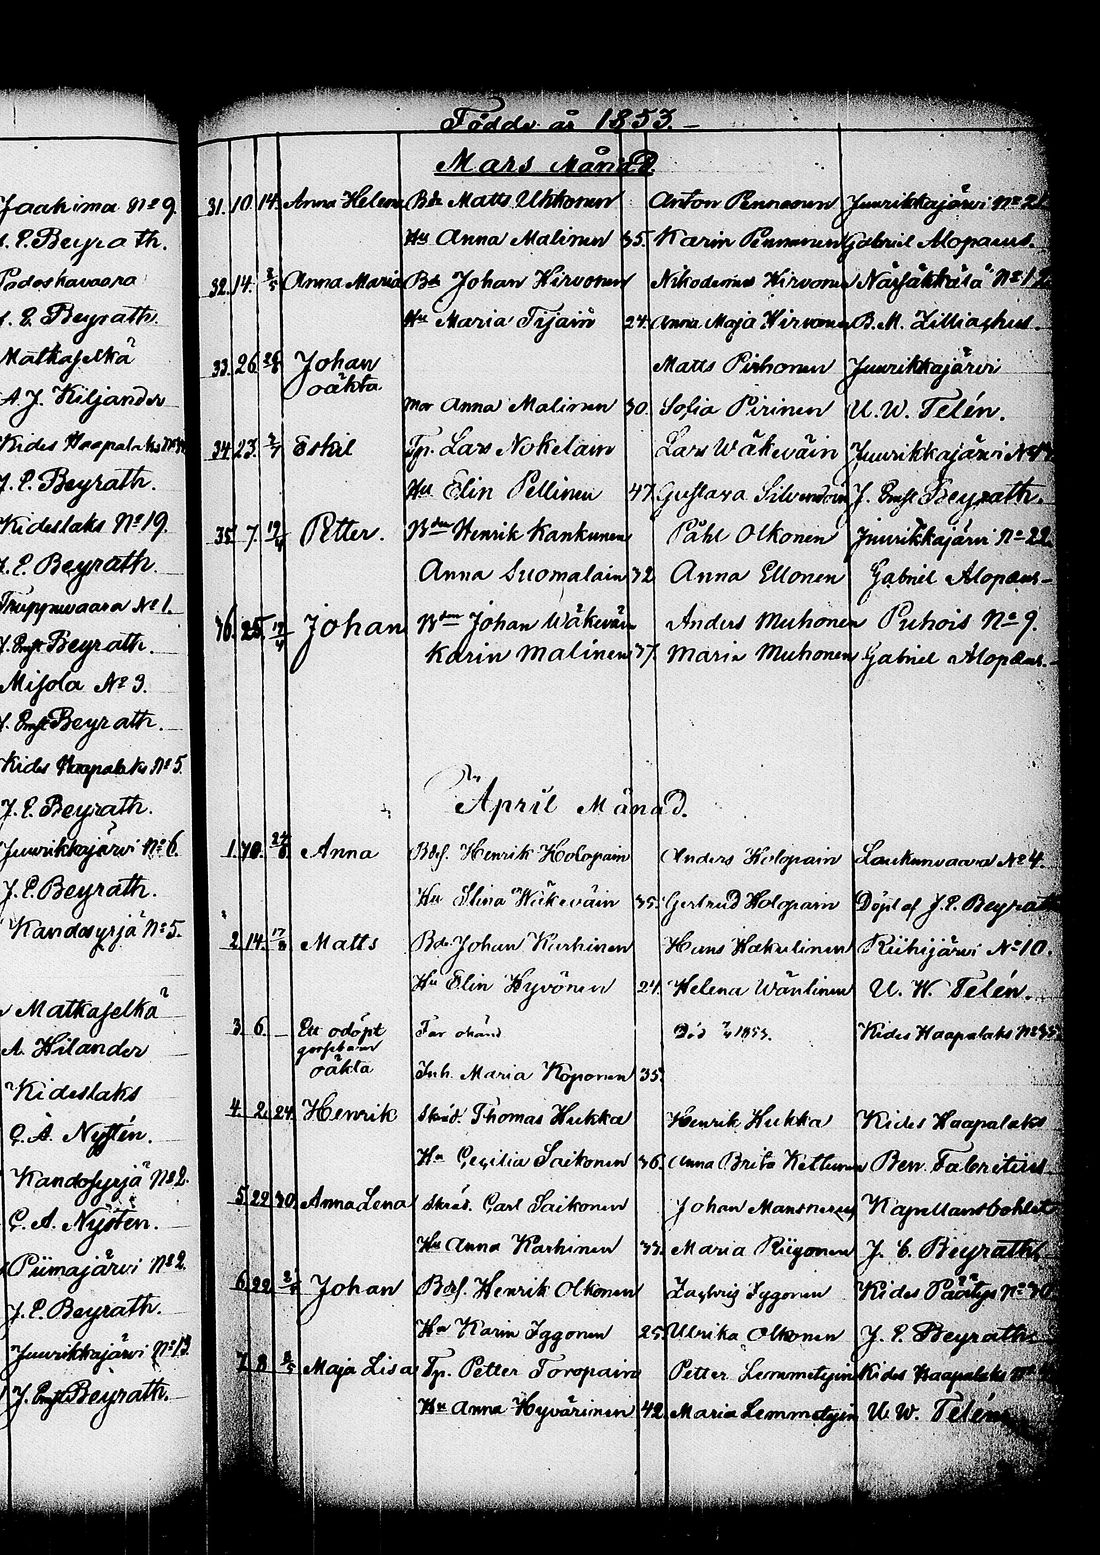 Jaakima No 9.
J. E. Beyrath.
Padoskavaara
J. E. Beyrath.
Matkaselkä
A. J. Kiljander
Kides Haapalaks
J. E. Beyrath.
Kideslaks No 19.
J. E. Beyrath.
Truppuvaara No 1.
J. Ernst Beyrath.
Misola No 3.
J. Ernst Beyrath.
Kides Haapalaks No 5.
J. E. Beyrath.
Juurikkajärvi No 6.
J. E. Beyrath.
Kandosyrjä No 5.
Matkaselkä
A. Hilander
Kideslaks
C. A. Nystén.
Kandosyrjä No 2.
C. A. Nystén.
Piimajärvi No 2.
J. E. Beyrath.
Juurikkajärvi No 13.
J. Ernst Beyrath.
Födde år 1853.
Mars Månad.
31. 10. 14. Anna Helena Bd. Matts Ukkonen Anton Pennanen Juurikkajärvi No 21.
Hu Anna Malinen 35. Karin Pennanen Gabriel Alopaeus.
32. 14. 2/5 Anna Maria Bd. Johan Hirvonen Nikodemus Hirvonen Närsäkkälä No 12
Hu Maria Tijain 24. Anna Maja Hirvonen B. M. Zilliachus.
33. 26. Johan Matts Pirhonen Juurikkajärvi
oäkta
Mor Anna Malinen 30. Sofia Pirinen U. W. Telén.
34. 23. Eskil Tp. Lars Nokelain Lars Wäkeväin Juurikkajärvi
Hu Elin Pellinen 47. Gustava Silvendoin J. Ernst Beyrath.
35. 7. 19/4 Petter. Bden Henrik Kankunen Påhl Olkonen Juurikkajärvi No 22.
Anna Suomalain 32 Anna Ellonen Gabriel Alopæus.
36. 25. 17/4 Johan Bden Johan Wäkeväin Anders Muhonen Puhois No 9.
Karin Malinen 37. Maria Muhonen Gabriel Alopæus.
April Månad.
1. 10. 24/3 Anna Bdes. Henrik Holopain Anders Holopain Laukunvaara No 4.
Hu Stina Wäkeväin 35. Gertrud Holopain Döpt af J. E. Beyrath
2. 14. 17/3 Matts Bd. Johan Karhinen Hans Hakulinen Riihijärvi No 10.
Hu Elin Hyvönen 24. Helena Wänlinen U. W. Telén.
3. 6. Ett odöpt Far okänd Död 1853. Kides Haapalaks No 35
gossebarn
oäkta Inh. Maria Koponen 35.
4. 2. 24. Henrik Skräd. Thomas Hukka Henrik Hukka Kides Haapalaks
Hu Cecilia Saikonen 36. Anna Brita Kettunen Ben. Fabritius
5. 22 30. Anna Lena Skräd. Carl Saikonen Johan Mansnerus Kapellansbohlet
Hu Anna Karhinen 33. Maria Riigonen J. E. Beyrath.
6. 22 Johan Bdes. Henrik Olkonen Iggonen Kides Päätys No 30
Hu Karin Iggonen 25 Ulrika Olkonen J. E. Beyrath.
7. 8. 2/5 Maja Lisa Tp. Petter Toropain Petter Lemmetyin Kides Haapalaks
Hu Anna Hyvärinen 42. Maria Lemmetyin U. W. Telén.